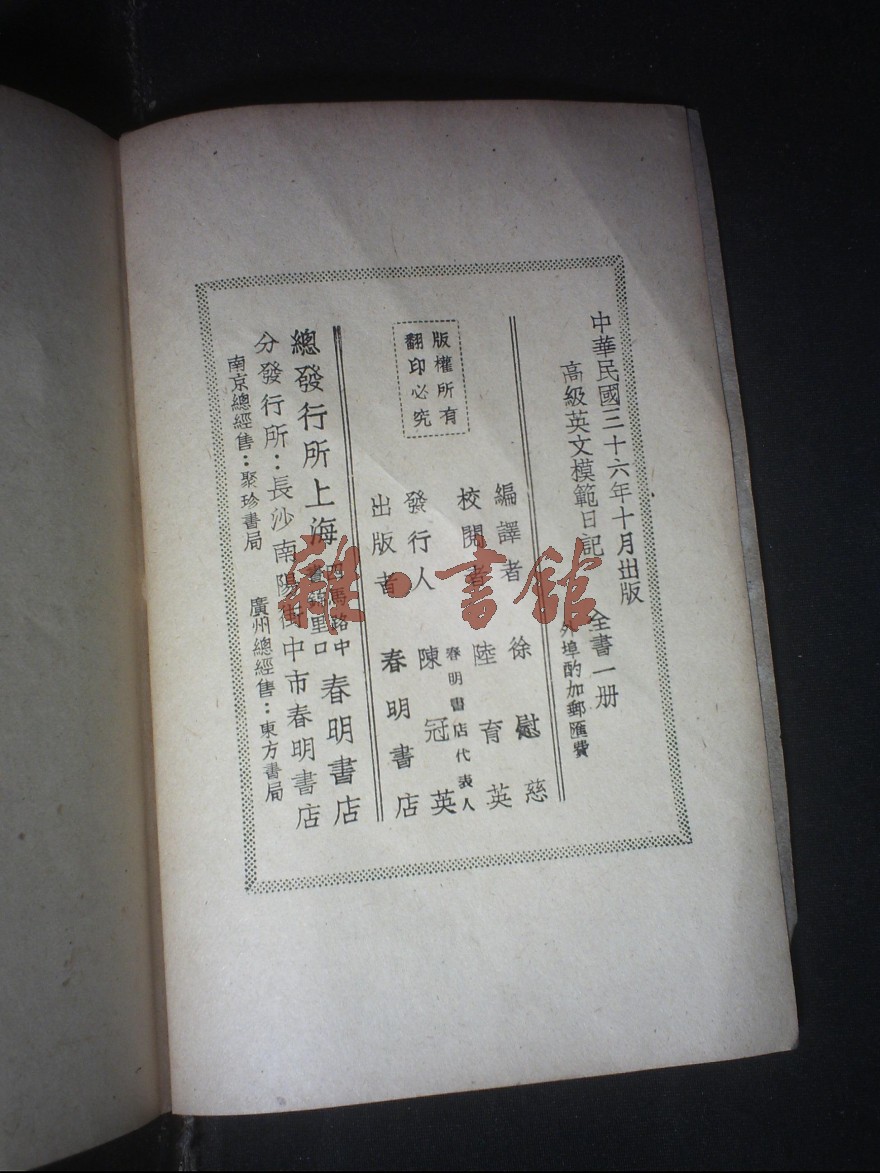 中華民國三十六年十月出版
高級英文模範日記 全書一册
外埠酌加郵匯費
編譯者 徐慰慈
校閱者 陸育英
春明書店代表人
發行人 陳冠英
出版者 春明書店
版權所有
翻印必究
總發行所上海 四馬路中 晝錦里口 春明書店
分發行所：長沙南陽街中市春明書店
南京總經售：聚珍書局 廣州總經售：東方書局
雜·書館